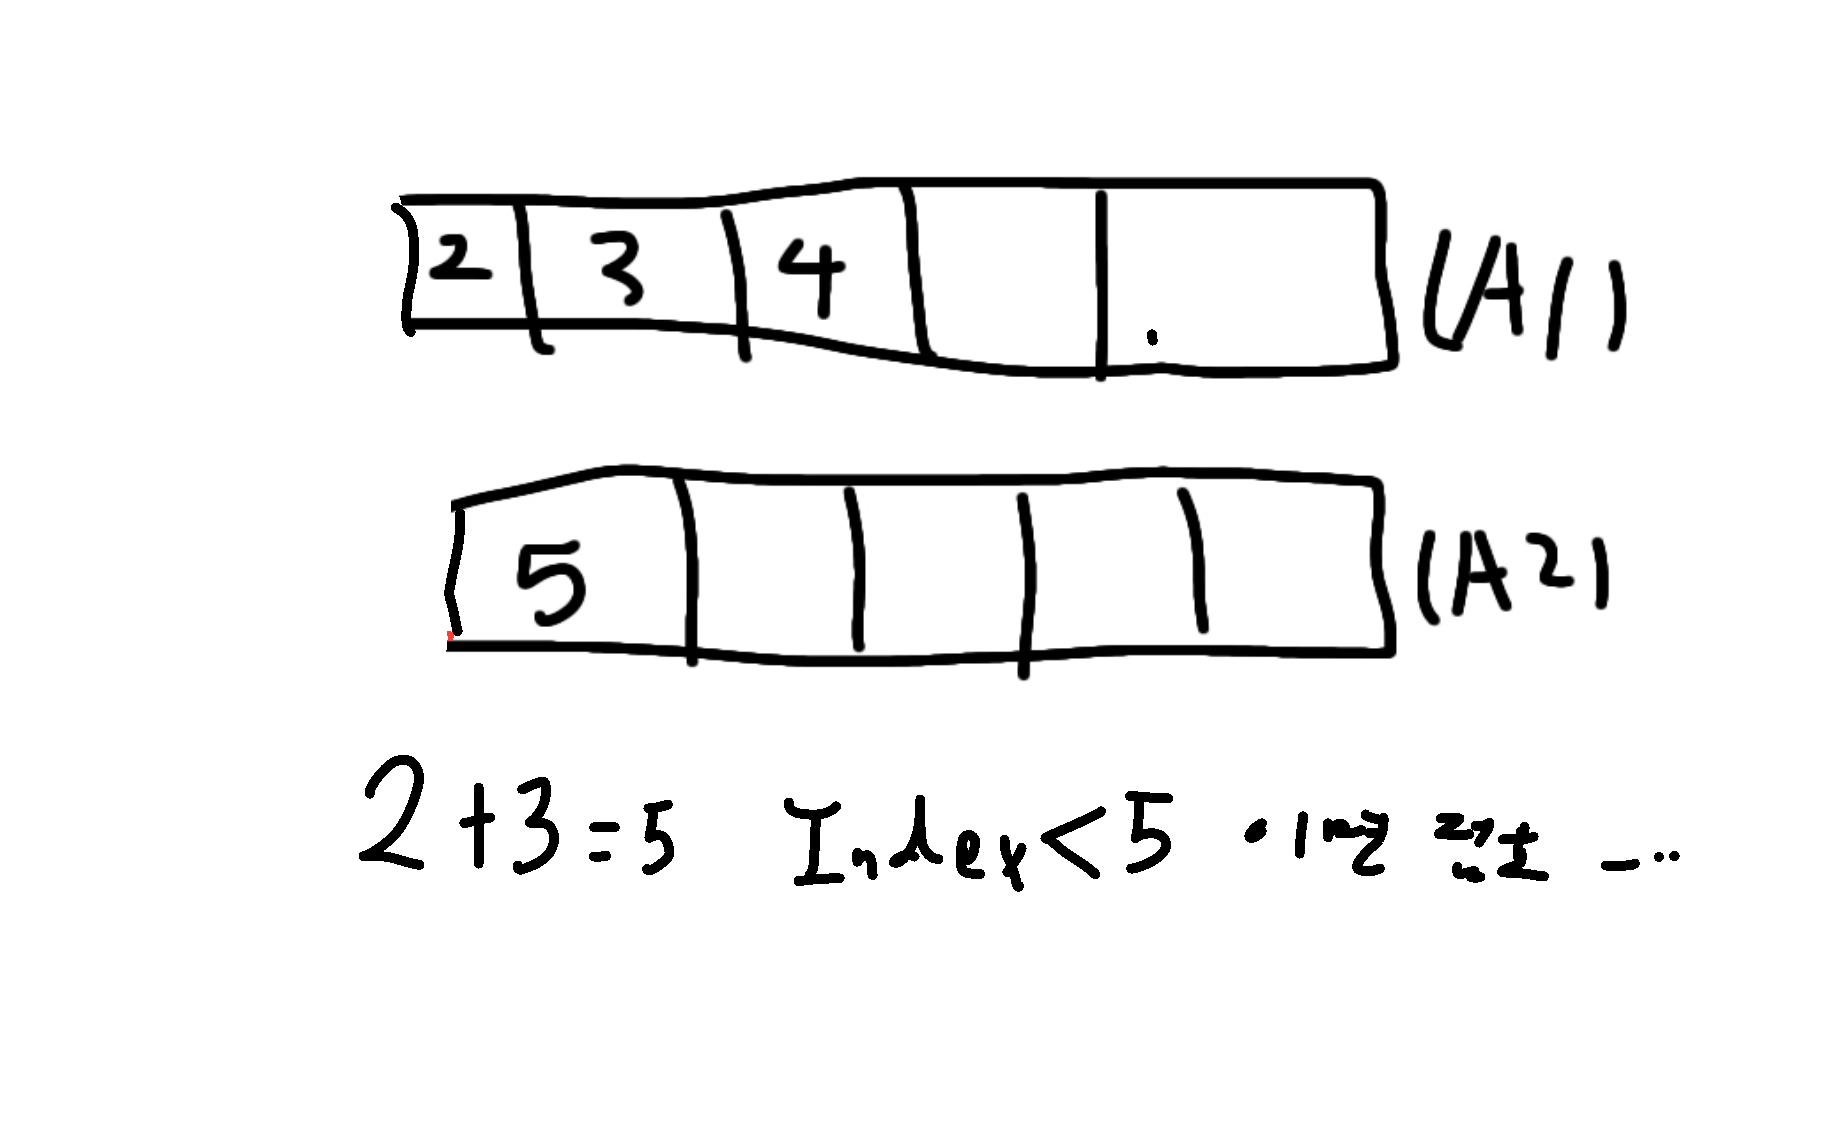 2 3 4 (A1)
5 (A2)
2+3=5 Index<5 · 1번 ...